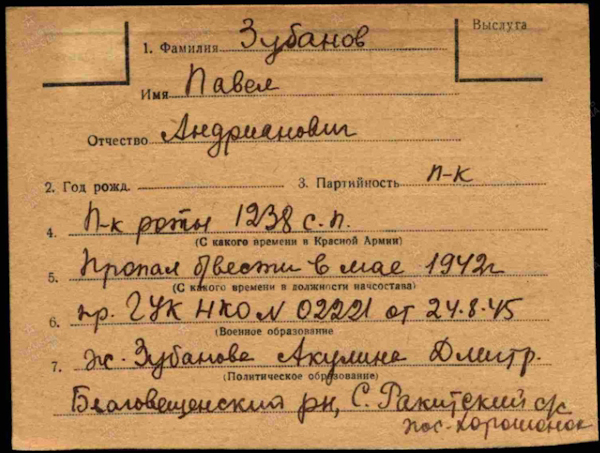 Выслуга
1. Фамилия Зубанов
Имя Павел
Отчество Андрианович
2. Год рожд. 3. Партийность п-к
4. П-к роты 1238 с.п.
(С какого времени в Красной Армии)
5. Пропал б/вести в мае 1942г
(С какого времени в должности начсостава)
6. пр. ГУК НКО N 02221 от 24.8.45
(Военное образование
7. ж. Зубанова Акулина Дмитр.
(Политическое образование)
Благовещенский рн, С. Ракитский с/с
пос. Хорошонок